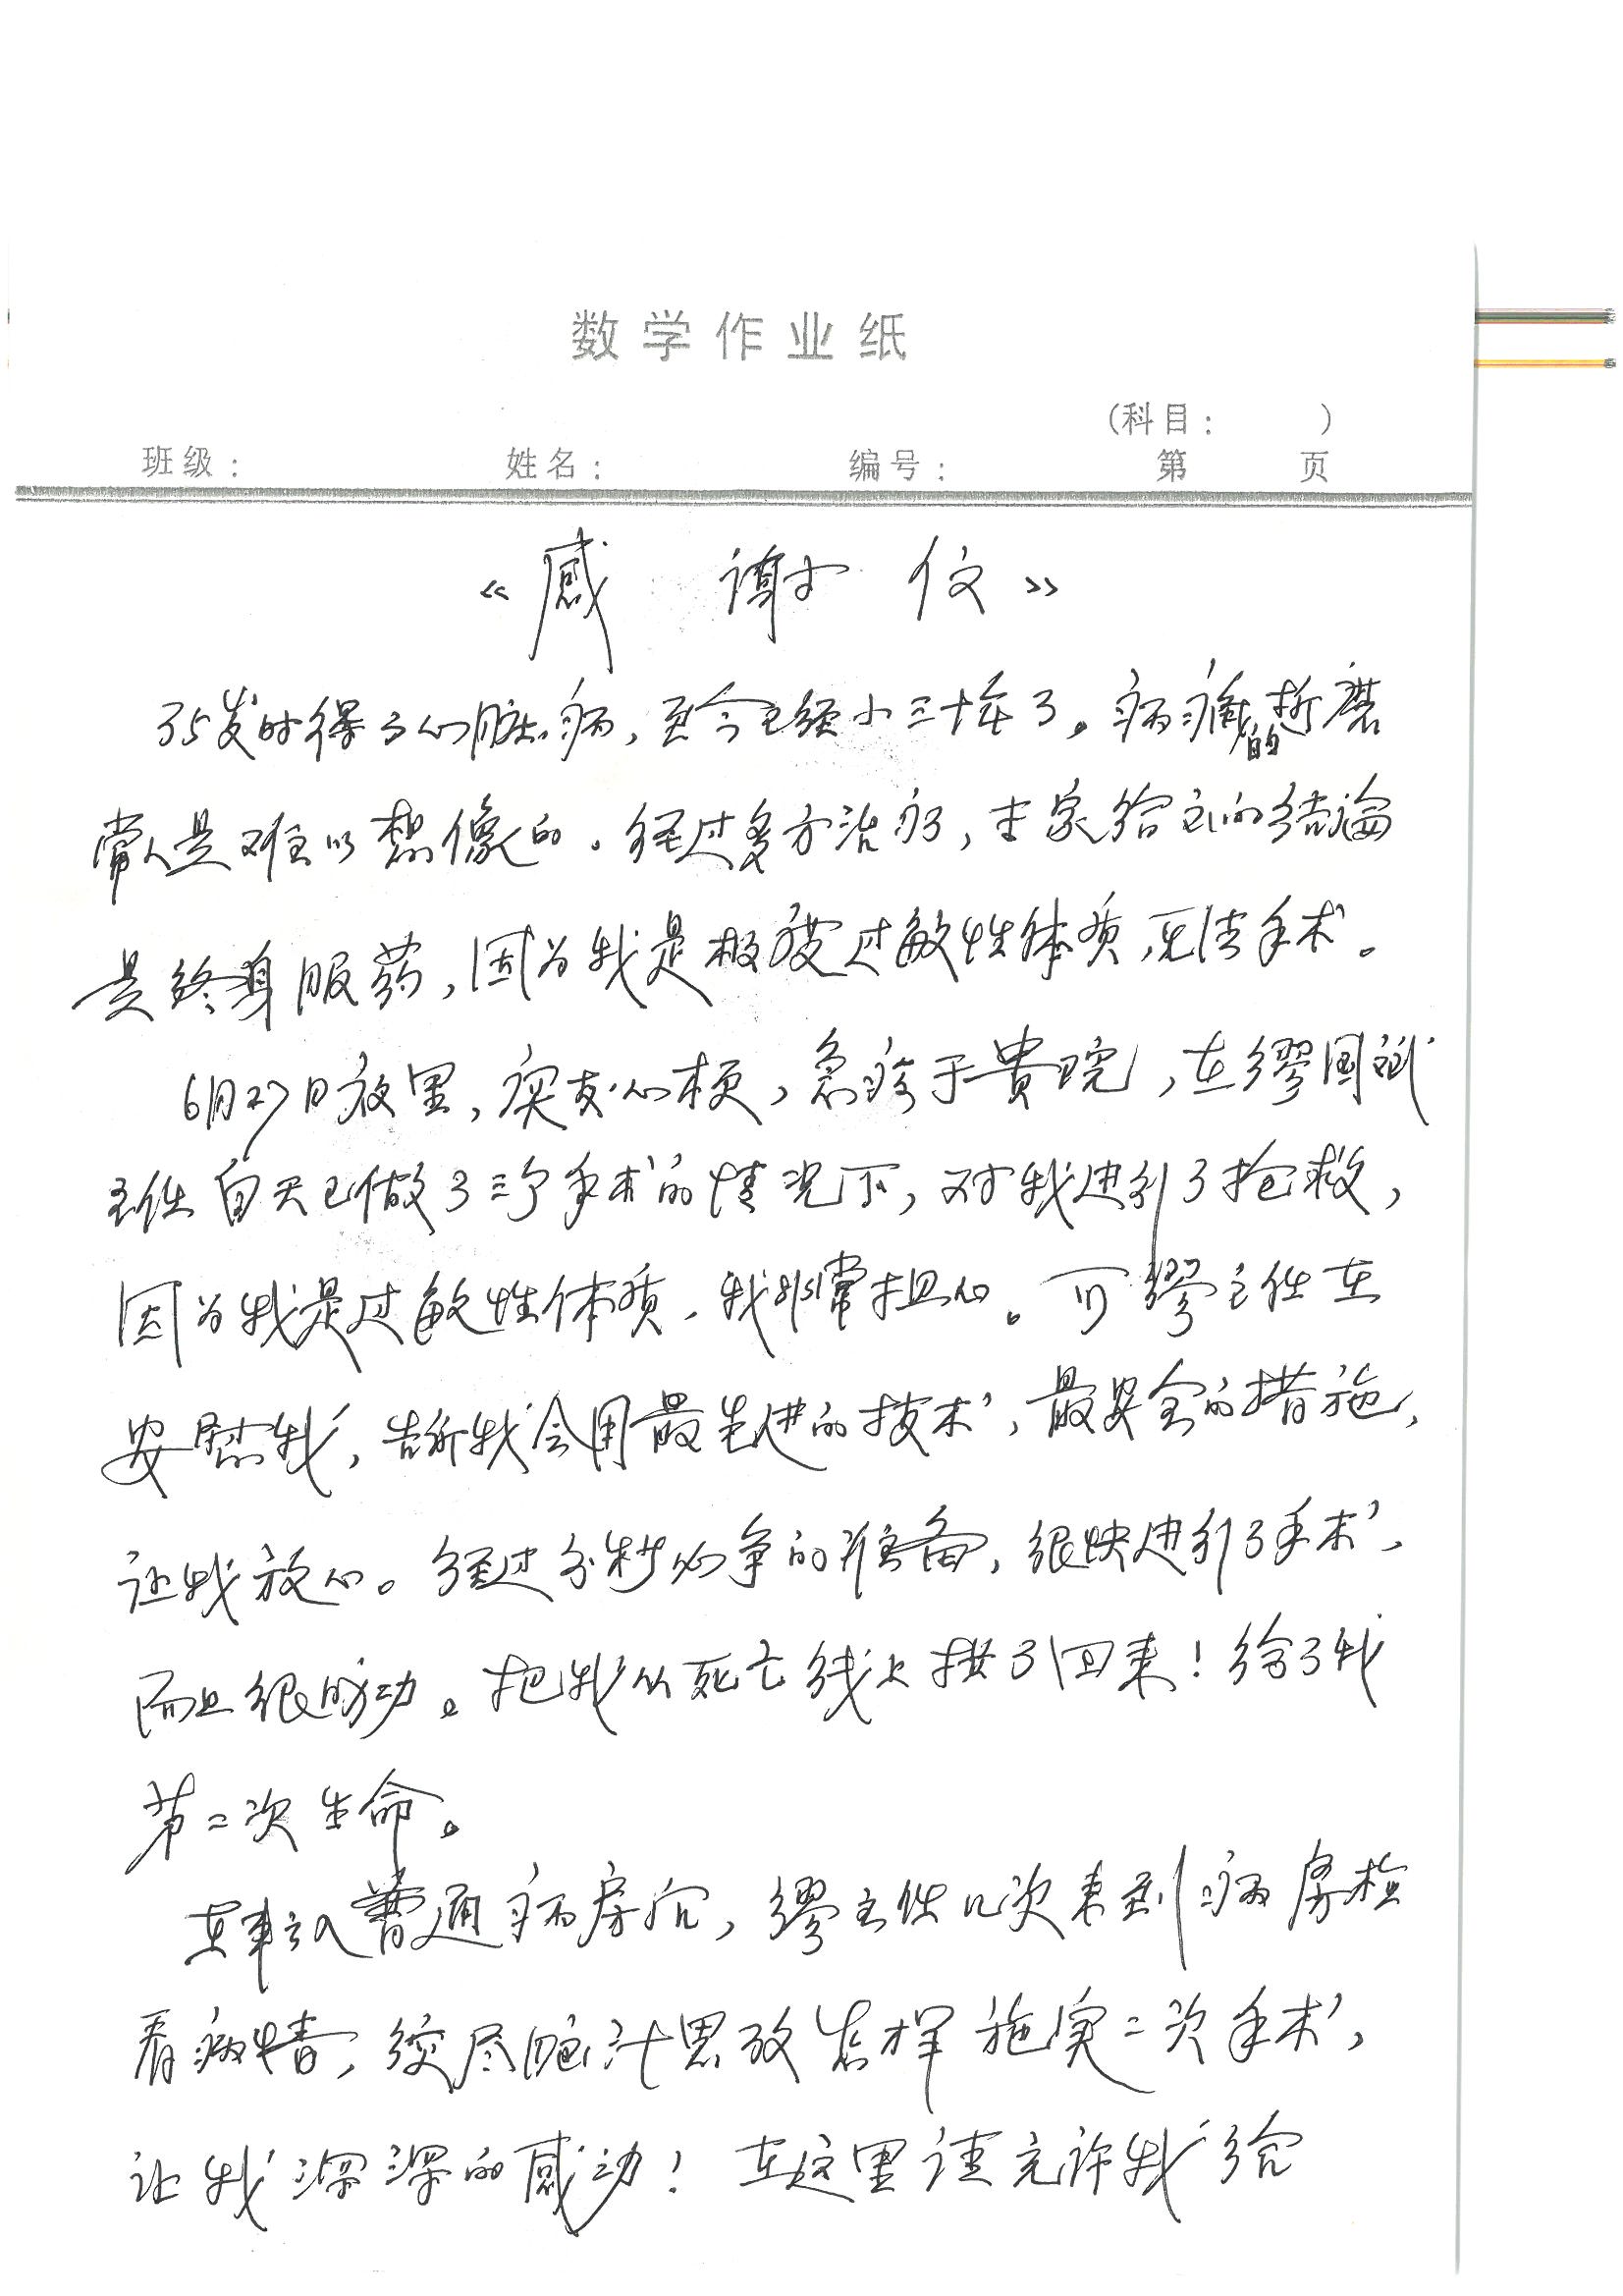 数学作业纸
(科目: )
班级: 姓名: 编号: 第 页
《感 谢 信》
35岁时得了心脏病,至今已经小三十年了。病痛的折磨
常人是难以想像的。经过多方治疗,专家给出的结论
是终身服药,因为我是极度过敏性体质,无法手术。
6月27日夜里,突发心梗,急诊于贵院,在缪国斌
主任白天已做了三个手术的情况下,对我进行了抢救,
因为我是过敏性体质,我非常担心。可缪主任在
安慰我,告诉我会用最先进的技术,最安全的措施,
让我放心。经过分秒必争的准备,很快进行了手术,
而且很成功。把我从死亡线上拱了回来!给了我
第二次生命。
在转入普通病房后,缪主任几次来到病房检
看病情,绞尽脑汁思考怎样施实二次手术,
让我深深的感动!在这里请允许我给